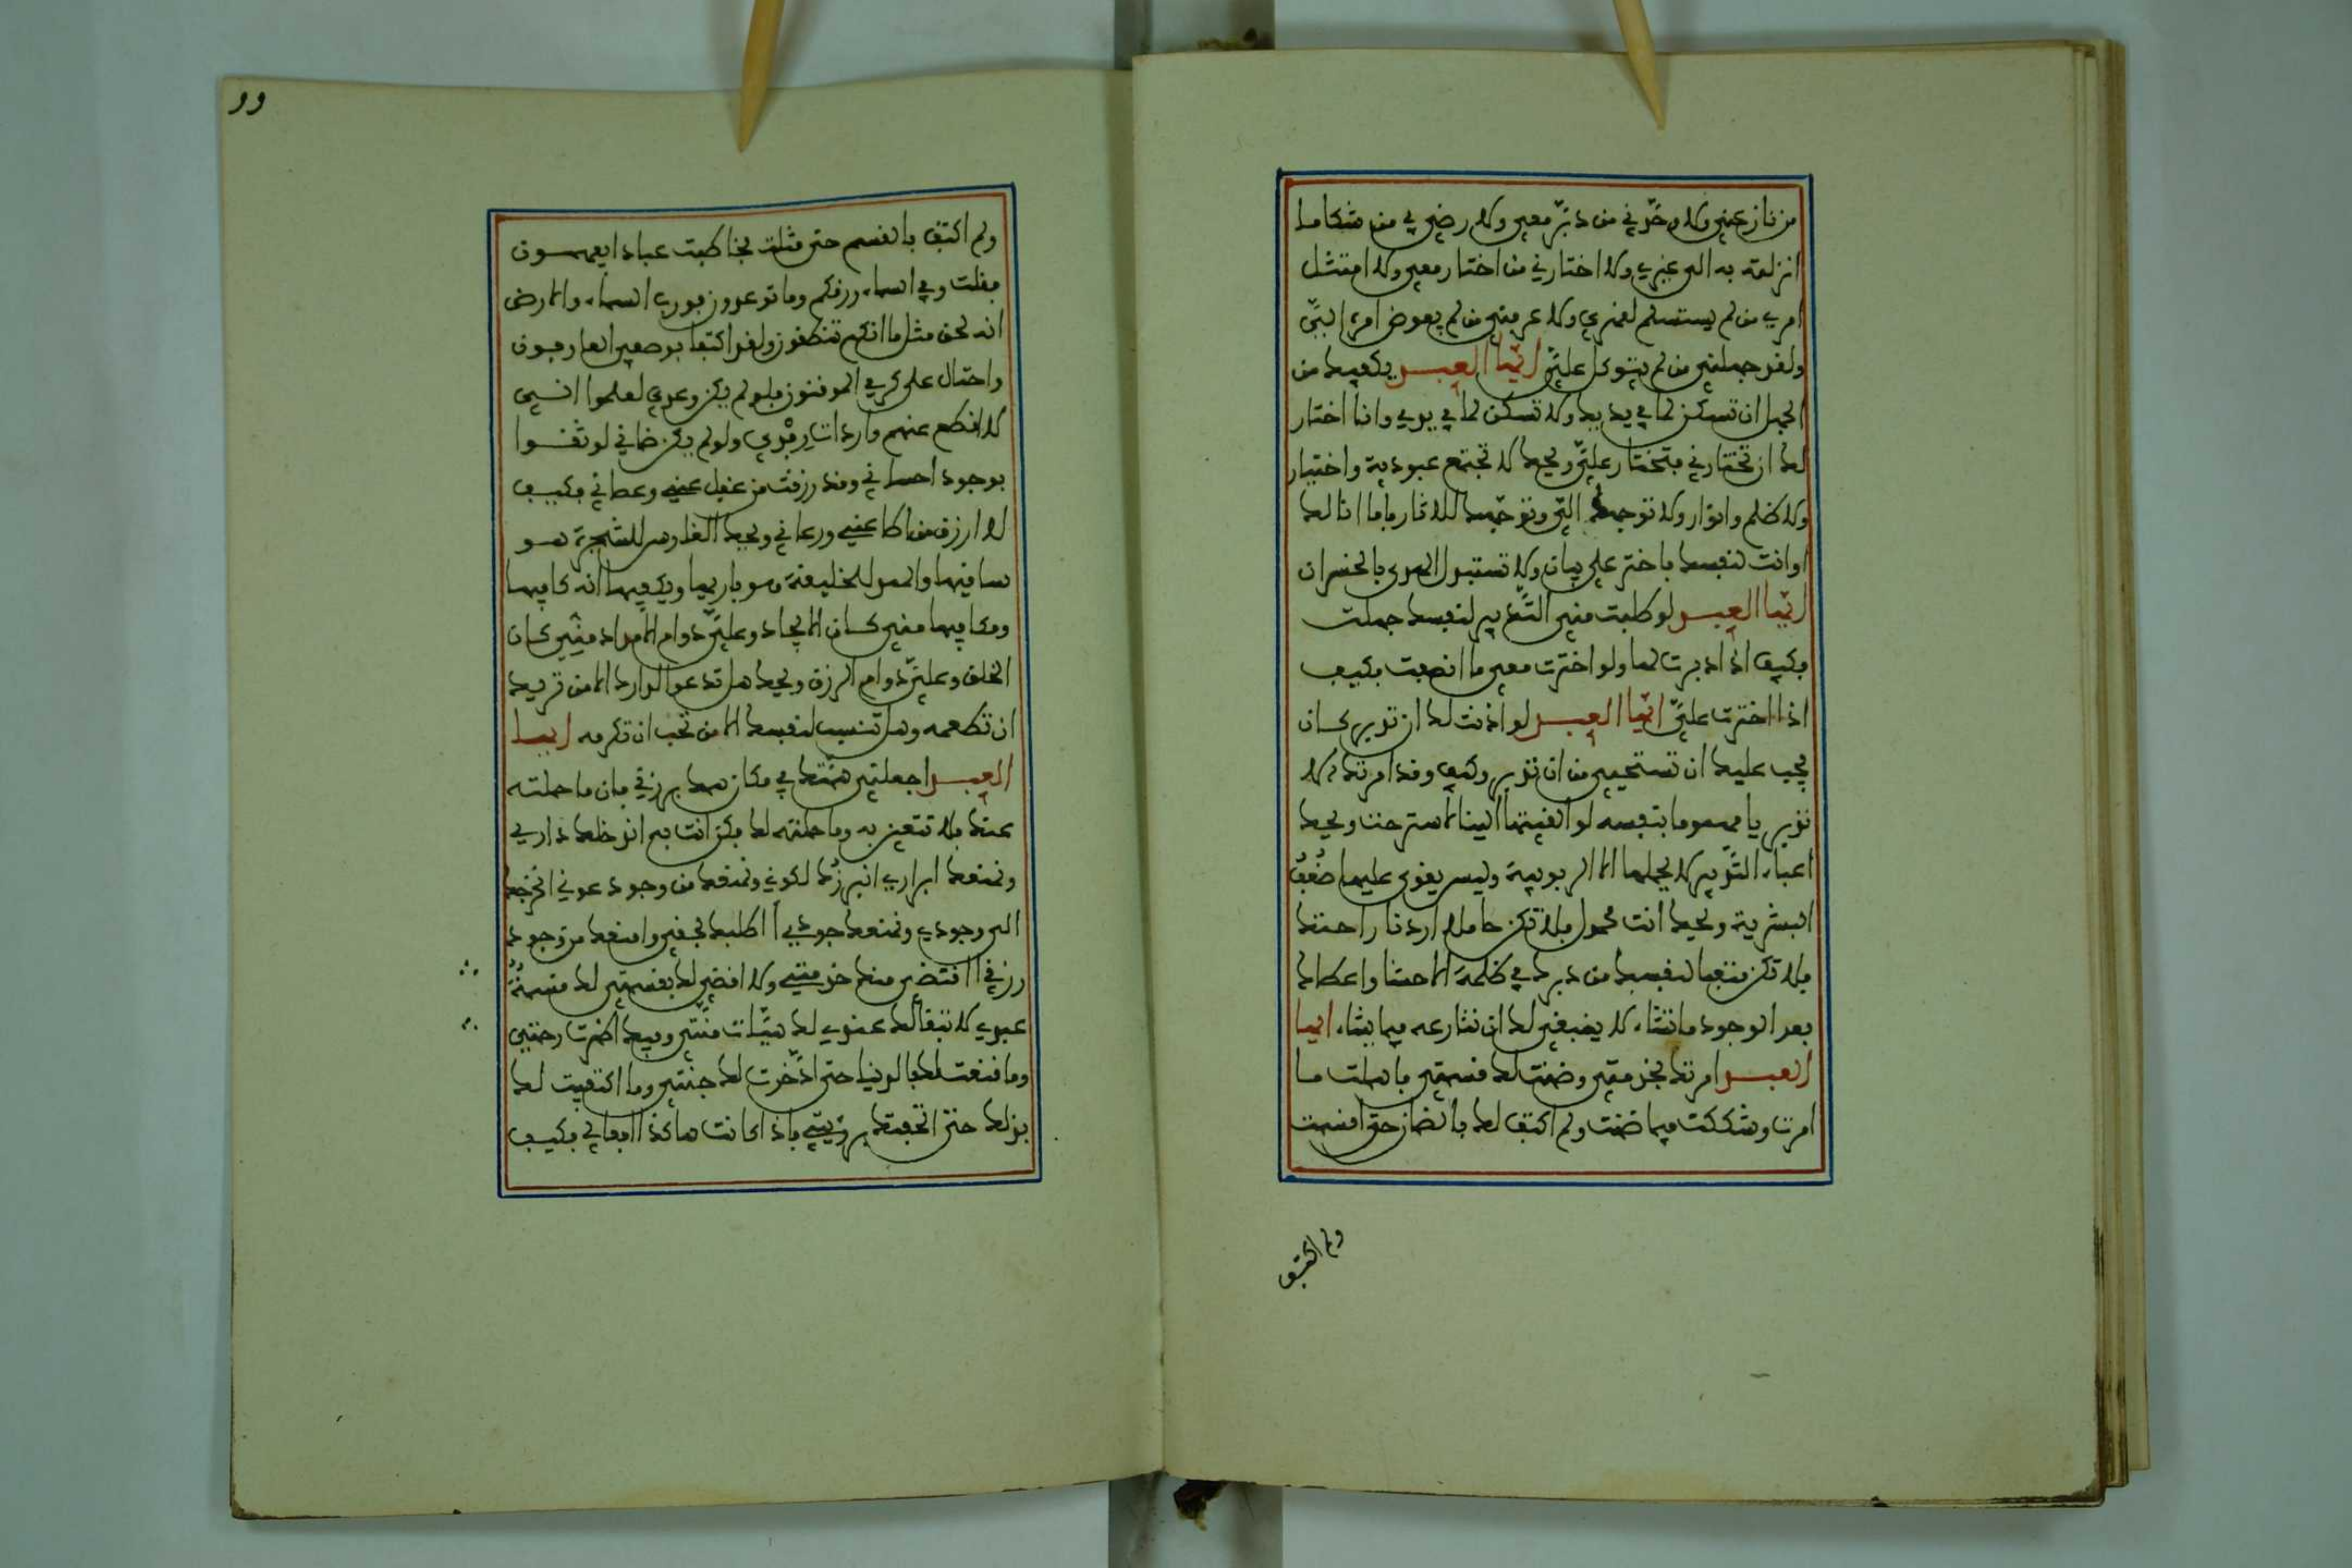 من نازعني ولا وحّدني من دبّر معي ولا رضي بي من شكا ما
انزلته به الى غيري ولا اختارني من اختار معي ولا امتثل
امري من لم يستسلم لقهري ولا عرفني من لم يفوض امره اليّ
ولقد جهلني من لم يتوكل عليّ ايّها العبد يكفيك من
الجهل ان تسكن لما في يديك ولا تسكن لما في يدي وانا اختار
لك ان تختارني فتختار عليّ ويحك لا تجتمع عبودية واختيار
ولا ظلم وانوار ولا توجهك اليّ وتوجّهك للاثار فاما انا لك
او انت لنفسك فاختر على بيان ولا تستبدل الهدى بالخسران
ايّها العبد لو طلبت مني التدبير لنفسك جهلت
فكيف اذا دبرت لها ولو اخترت معي ما انصفت فكيف
اذا اخترت عليّ ايّها العبد لو اذنت لك ان تدبر كان
يجب عليك ان تستحيي من ان تدبر وكيف وقد امرتك الا
تدبر يا مهموما بنفسه لو القيتها الينا لاسترحت ويحك
اعباء التّدبير لا يحملها الا الربوبية وليس يقوى عليها ضُعفُ
البشرية ويحك انت محمول فلا تكن حاملا اردنا راحتك
فلا تكن متعبا لنفسك من دبرك في ظلمة الاحشا واعطاك
بعد الوجود ما تشاء لا ينبغي لك ان تنازعه فيما يشاء ايها
العبد امرتك بخدمتي وضمنت لك قسمتي فاهملت ما
امرت وشككت فيما ضمنت ولم اكتف لك بالضمان حتى اقسمت
ولم اكتف
وو
ولم اكتف بالقسم حتى مثلت فخاطبت عبادا يفهمون
فقلت وفي السماء رزقكم وما توعدون فورب السماء والارض
انه لحق مثل ما انكم تنطقون ولقد اكتفا بوصفي العارفون
واحتال على كرمي الموقنون فلو لم يكن وعدي لعلموا انـي
لا اقطع عنهم واردات رِفْدي ولو لم يكن ضماني لوثقـوا
بوجود احساني وقد رزقت من غفل عني وعصاني فكيف
لا ارزق من اطاعني ورعاني ويحك الغارس للشجرة هو
ساقيها والممد للخليفة هو باريها ويكفيها انه كافيها
ومكافيها مني كان الايجاد وعليّ دوام الامداد منّي كان
الخلق وعليّ دوام الرزق ويحك هل تدعوا لدارك الا من تريد
ان تطعمه وهل تنسب لنفسك الا من تحب ان تكرمه ايها
العبد اجعلني همّتك في مكان همك برزقي فان ما حملته
عنك فلا تتعن به وما حملته لك فكن انت به اندخلك داري
ونمنعك ابراري انبرزُك لكوني ونمنعك من وجود عوني انخرجك
الى وجودي ونمنعك جودي اطلبك بحقي وامنعك من وجود
رزقي اقتضي منك خدمتي ولا اقضي لك بقسمتي لك قسمةُ
عبدي لا تبقا لك عندي لك هيّئات منّتي وفيك اظهرت رحمتي
وما قنعت لك بالدنيا حتى ادّخرت لك جنّتي وما اكتفيت لك
بذلك حتى اتحفتك برؤيتي فاذا كانت هاكذا افعالي فكيف